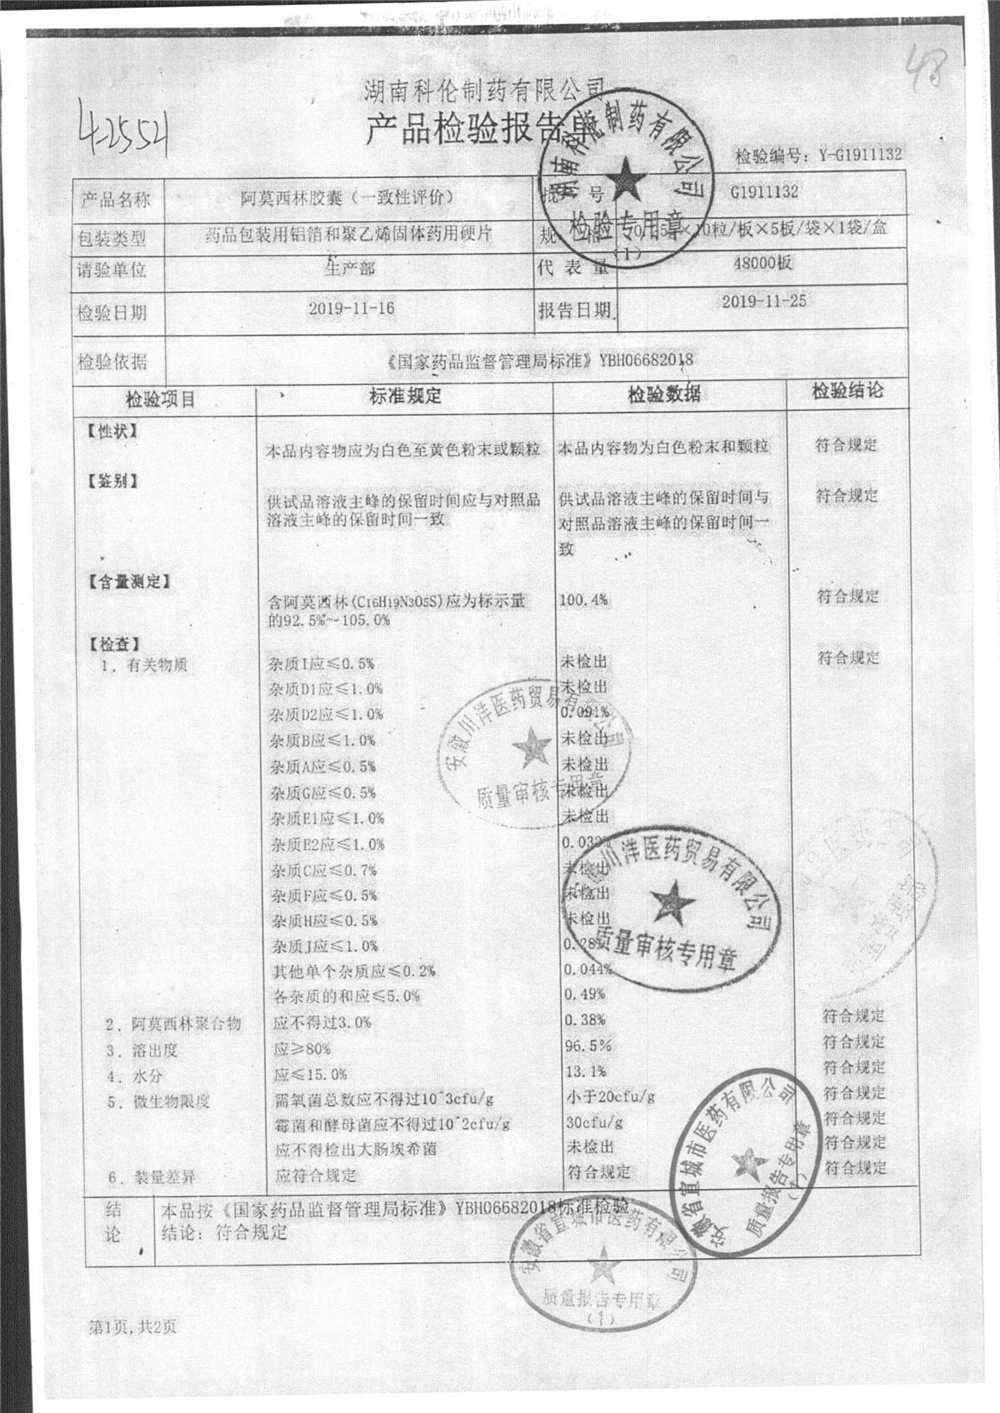 48
42552
湖南科伦制药有限公司
产品检验报告单
检验编号: Y-G1911132
产品名称 阿莫西林胶囊（一致性评价） 批 号 G1911132
包装类型 药品包装用铝箔和聚乙烯固体药用硬片 规 ×10粒/板×5板/袋×1袋/盒
请验单位 生产部 代 表 量 48000板
检验日期 2019-11-16 报告日期 2019-11-25
检验依据 《国家药品监督管理局标准》YBH06682018
检验项目 标准规定 检验数据 检验结论
【性状】
本品内容物应为白色至黄色粉末或颗粒 本品内容物为白色粉末和颗粒 符合规定
【鉴别】
供试品溶液主峰的保留时间应与对照品 供试品溶液主峰的保留时间与 符合规定
溶液主峰的保留时间一致 对照品溶液主峰的保留时间一
致
【含量测定】
含阿莫西林(C16H19N3O5S)应为标示量 100.4% 符合规定
的92.5%~105.0%
【检查】
1. 有关物质 杂质I应≤0.5% 未检出 符合规定
杂质D1应≤1.0% 未检出
杂质D2应≤1.0% 0.091%
杂质B应≤1.0% 未检出
杂质A应≤0.5% 未检出
杂质G应≤0.5% 未检出
杂质E1应≤1.0% 未检出
杂质E2应≤1.0%
杂质C应≤0.7% 未检出
杂质F应≤0.5% 未检出
杂质H应≤0.5% 未检出
杂质J应≤1.0% 0.28%
其他单个杂质应≤0.2% 0.044%
各杂质的和应≤5.0% 0.49%
2. 阿莫西林聚合物 应不得过3.0% 0.38% 符合规定
3. 溶出度 应≥80% 96.5% 符合规定
4. 水分 应≤15.0% 13.1% 符合规定
5. 微生物限度 需氧菌总数应不得过10^3cfu/g 小于20cfu/g 符合规定
霉菌和酵母菌应不得过10^2cfu/g 30cfu/g 符合规定
应不得检出大肠埃希菌 未检出 符合规定
6. 装量差异 应符合规定 符合规定 符合规定
结 本品按《国家药品监督管理局标准》YBH06682018标准检验
论 结论: 符合规定
第1页,共2页
湖南科伦制药有限公司
检验专用章
(1)
安徽川洋医药贸易有限公司
质量审核专用章
川洋医药贸易有限公司
质量审核专用章
安徽省宣城市医药有限公司
质量报告专用章
(1)
安徽省宣城市医药有限公司
质量报告专用章
(1)